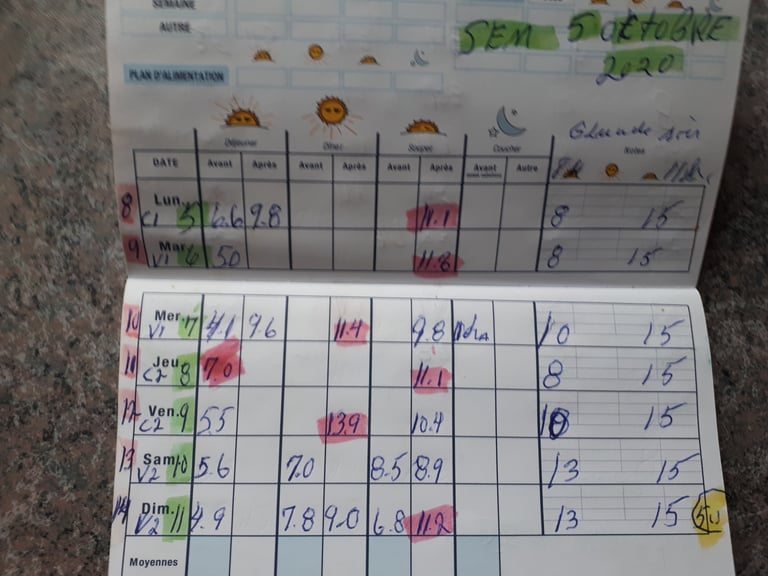 SEMAINE
AUTRE
SEM 5 OKTOBRE
2020
PLAN D'ALIMENTATION
Déjeuner Dîner Souper Coucher
DATE Avant Après Avant Après Avant Après Avant Autre Notes
8 Lun. 5 C1 6.6 9.8 11.1 8 15
9 Mar. 6 V1 50 11.8 8 15
10 Mer. 7 V1 4.1 9.6 11.4 9.8 10 15
11 Jeu. 8 C2 7.0 11.1 8 15
12 Ven. 9 C2 5.5 13.9 10.4 10 15
13 Sam. 10 V2 5.6 7.0 8.5 8.9 13 15
14 Dim. 11 V2 4.9 7.8 9.0 6.8 11.2 13 15
Moyennes